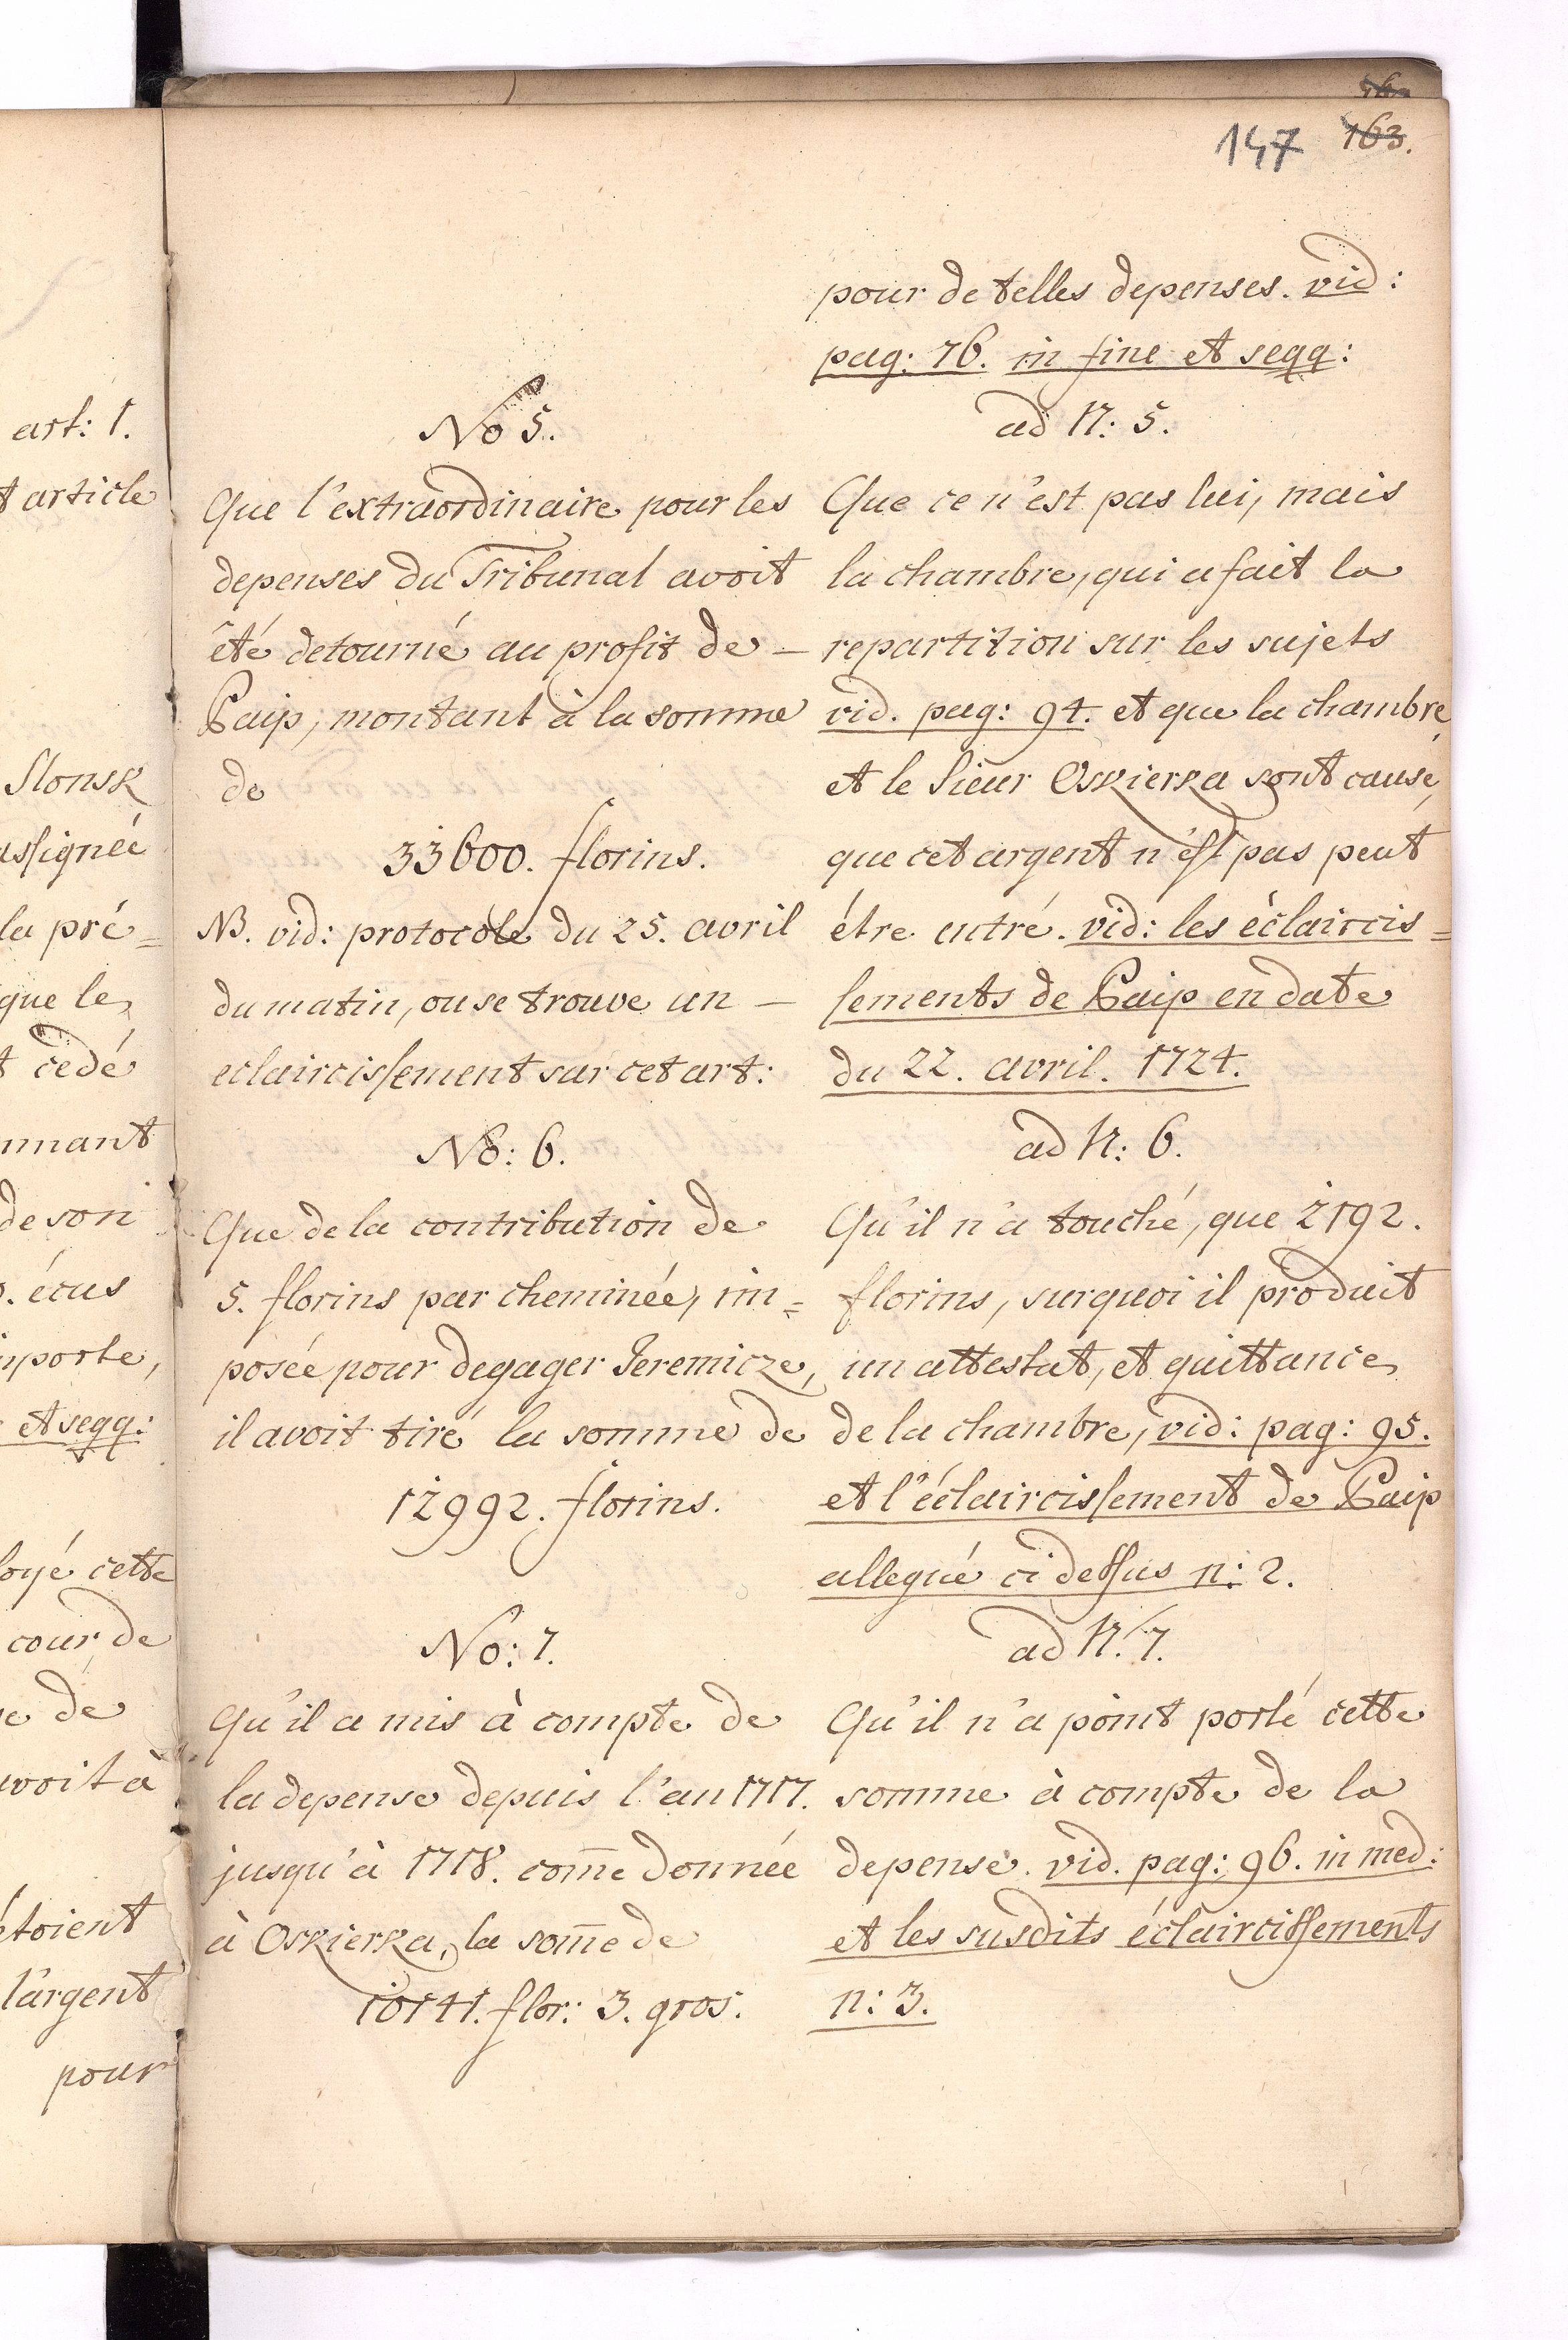 147 163.
art: 1.
t article
Slonsk
assignée
la pré=
que le
t cedé
nnant
de son
0. écus
mporte,
et segq:
loyé cette
cour de
de
avoit à
étoient
l'argent
pour
No 5.
Que l'extraordinaire pour les
depenses du Tribunal avoit
été detourné au profit de —
Paip, montant à la somme
de
33600. florins.
NB. vid: protocole du 25. avril
du matin, ou se trouve un —
eclaircissement sur cet art:
No: 6.
Que de la contribution de
5. florins par cheminée, im=
posée pour degager Jeremicze,
il avoit tiré la somme de
12992. florins.
No: 7.
Qu'il a mis à compte de
la depense depuis l'an 1717.
jusqu'à 1718. com̄e donnée
à Oskierka, la som̄e de
10141. flor: 3. gros.
pour de telles depenses. vid:
pag: 76. in fine et seqq:
ad N: 5.
Que ce n'est pas lui, mais
la chambre, qui a fait la
repartition sur les sujets
vid. pag: 94. et que la chambre
et le Sieur Oskierka sont cause,
que cet argent n'est pas peut
étre entré. vid: les éclaircis=
sements de Paip en date
du 22. avril. 1724.
ad N: 6.
Qu'il n'a touché, que 2192.
florins, surquoi il produit
un attestat, et quittance
de la chambre, vid: pag: 95.
et l'éclaircissement de Paip
allegué ci dessus n: 2.
ad N: 7.
Qu'il n'a point porté cette
somme à compte de la
depense. vid. pag: 96. in med:
et les susdits éclaircissements
n: 3.